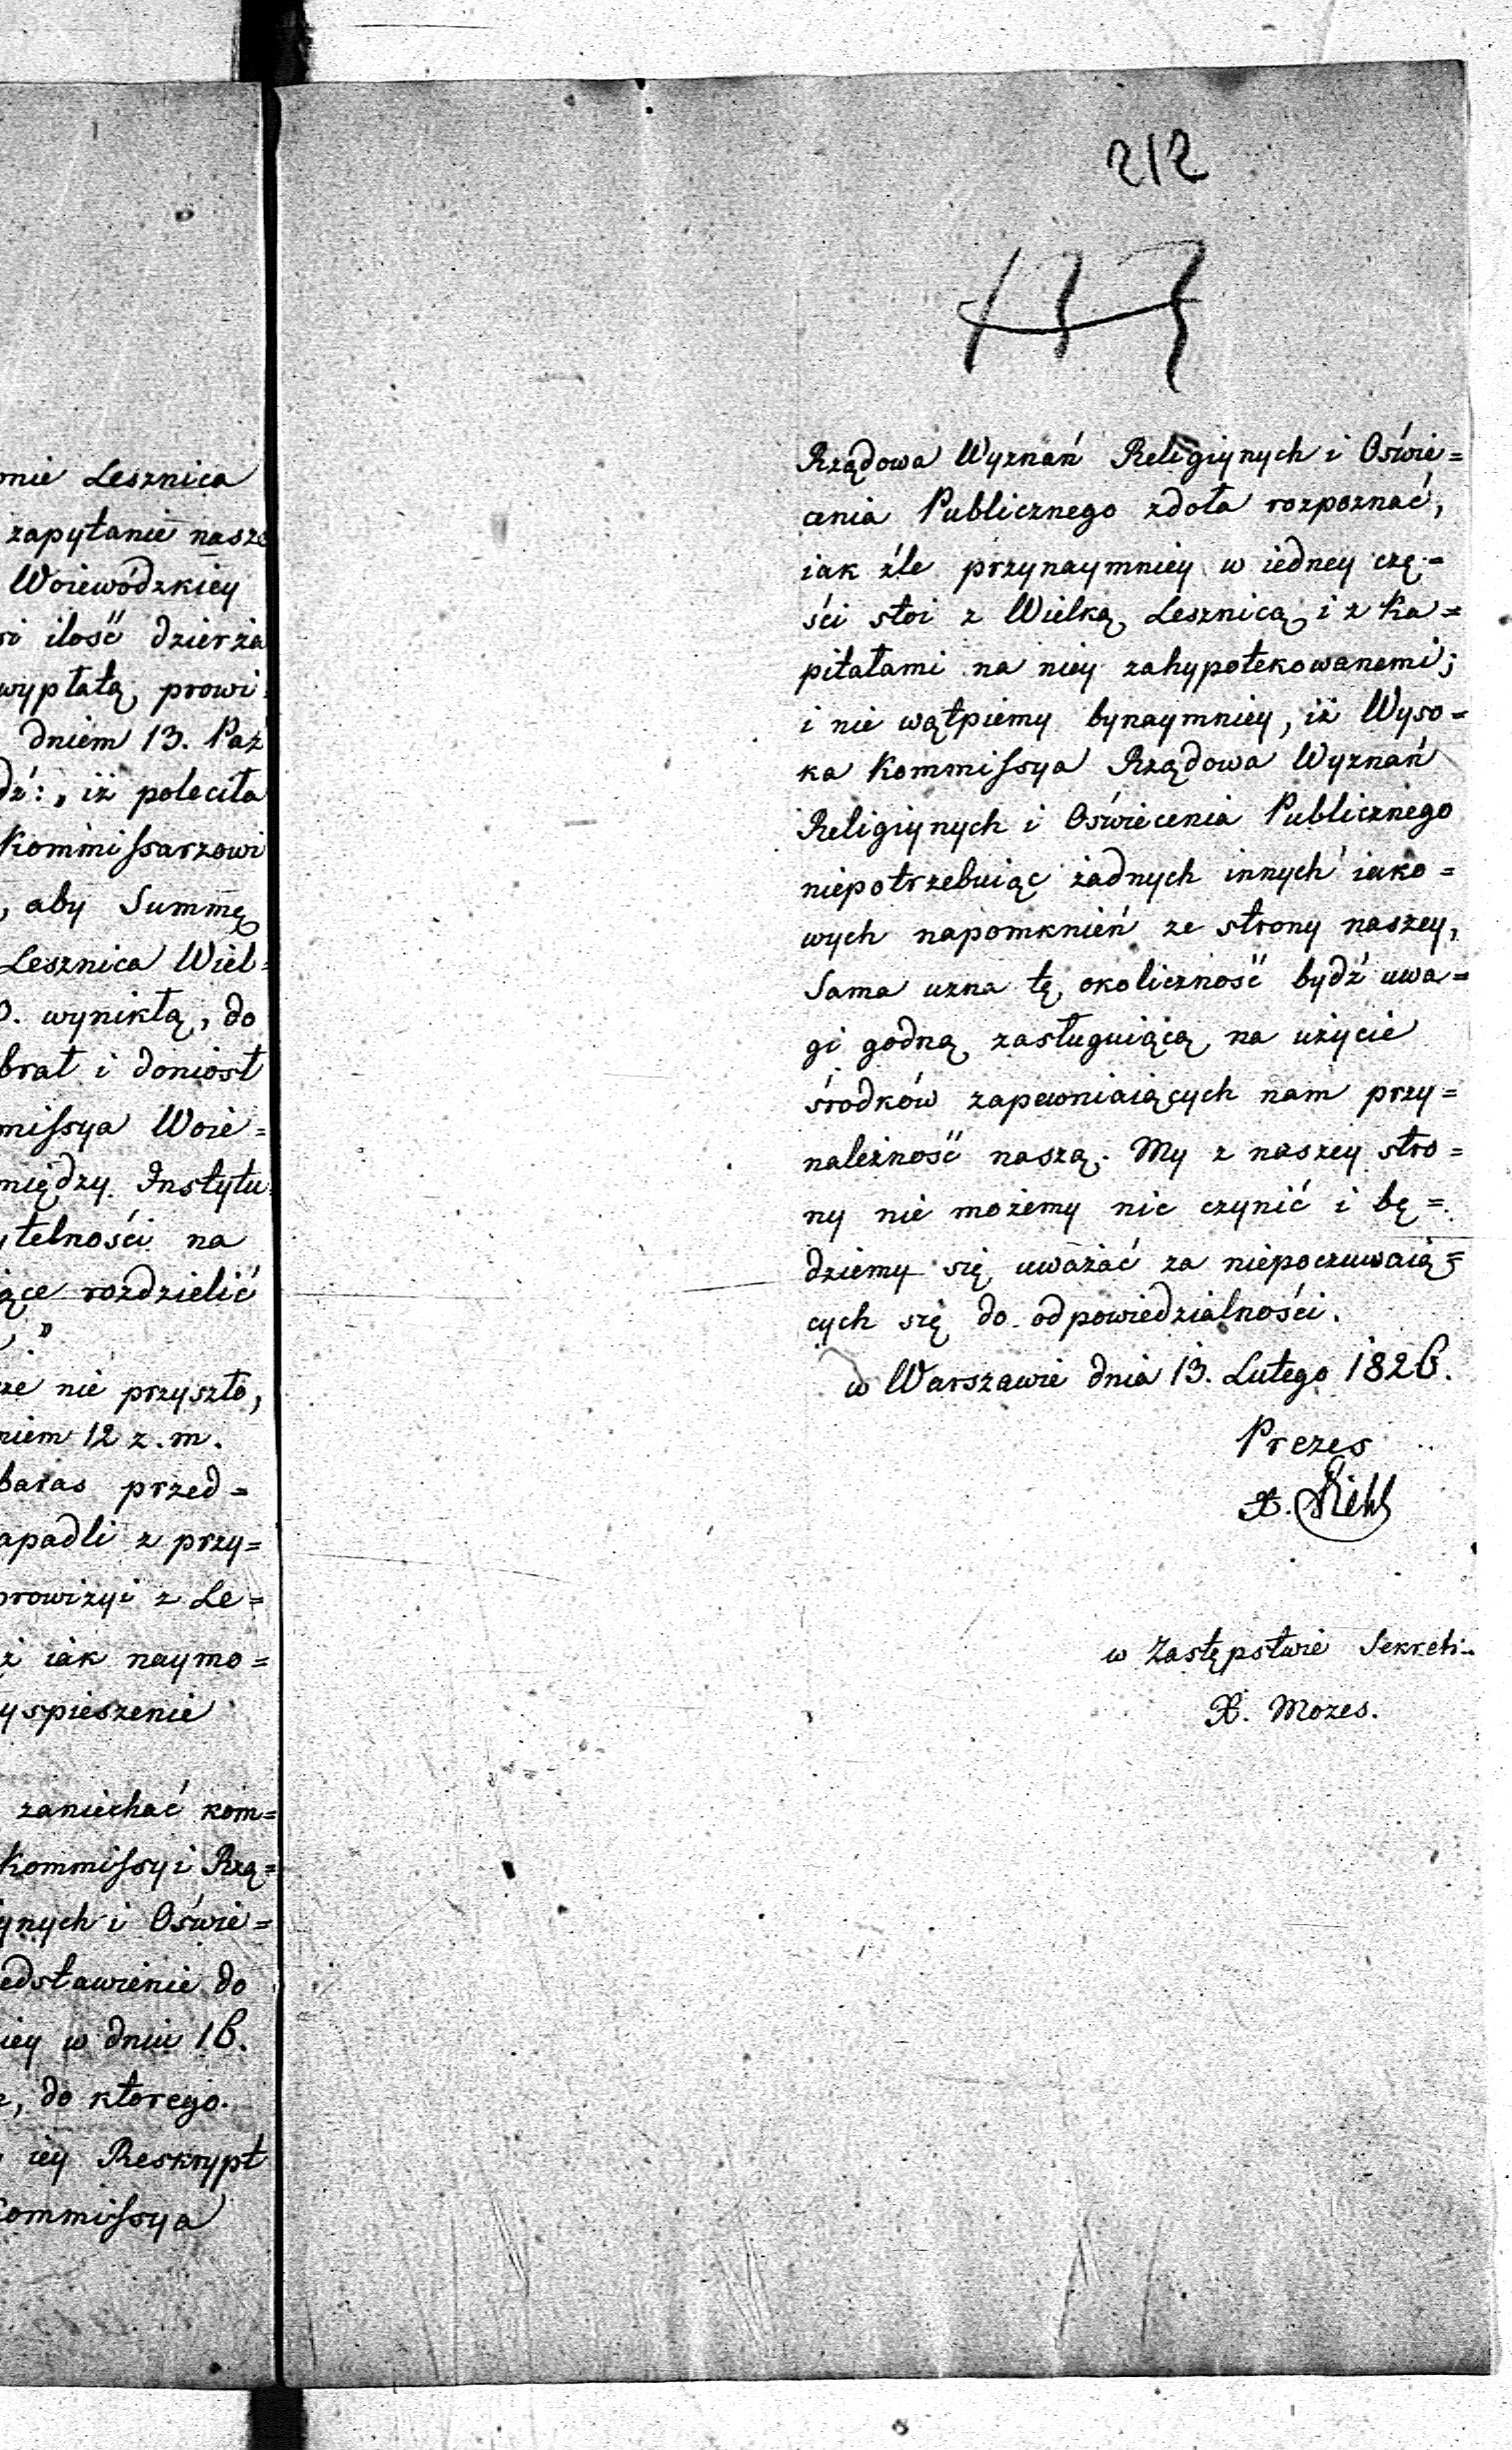 onie Lesznica
zapytanie nasze
Woiewódzkiey
si ilość dzierża
wypłatą prowi=
dniem 13. Paź
dź: „ iż poleciła
Kommissarzowi
, aby Summę
Lesznica Wiel=
0. wynikłą, do
brał i doniosł
missya Woie=
między Instytu
ytelności na
iące rozdzielić
”
ze nie przyszło,
niem 12 z. m.
baras przed=
apadli z przy=
prowizyi z Le=
ż iak naymo=
yspieszenie
zaniechać kom=
Kommissyi Rzą=
ynych i Oświe=
edstawienie do
iey w dniu 16.
, do którego
iey Reskrypt
Kommissya
212
137
Rządowa Wyznań Religiynych i Oświe=
cenia Publicznego zdoła rozpoznać,
iak źle przynaymniey w iedney czę=
ści stoi z Wielką Lesznicą i z Ka=
pitałami na niey zahypotekowanemi;
i nie wątpiemy bynaymniey, iż Wyso=
ka Kommissya Rządowa Wyznań
Religiynych i Oświecenia Publicznego
niepotrzebuiąc żadnych innych iako=
wych napomknień ze strony naszey,
Sama uzna tę okoliczność bydź uwa=
gi godną zasługuiącą na użycie
środków zapewniaiących nam przy=
należność naszą. My z naszey stro=
ny nie możemy nic czynić i bę=
dziemy się uważać za niepoczuwaią=
cych się do odpowiedzialności.
w Warszawie dnia 13. Lutego 1826.
Prezes
X. Diehl
w Zastępstwie Sekret:
X. Mozes.